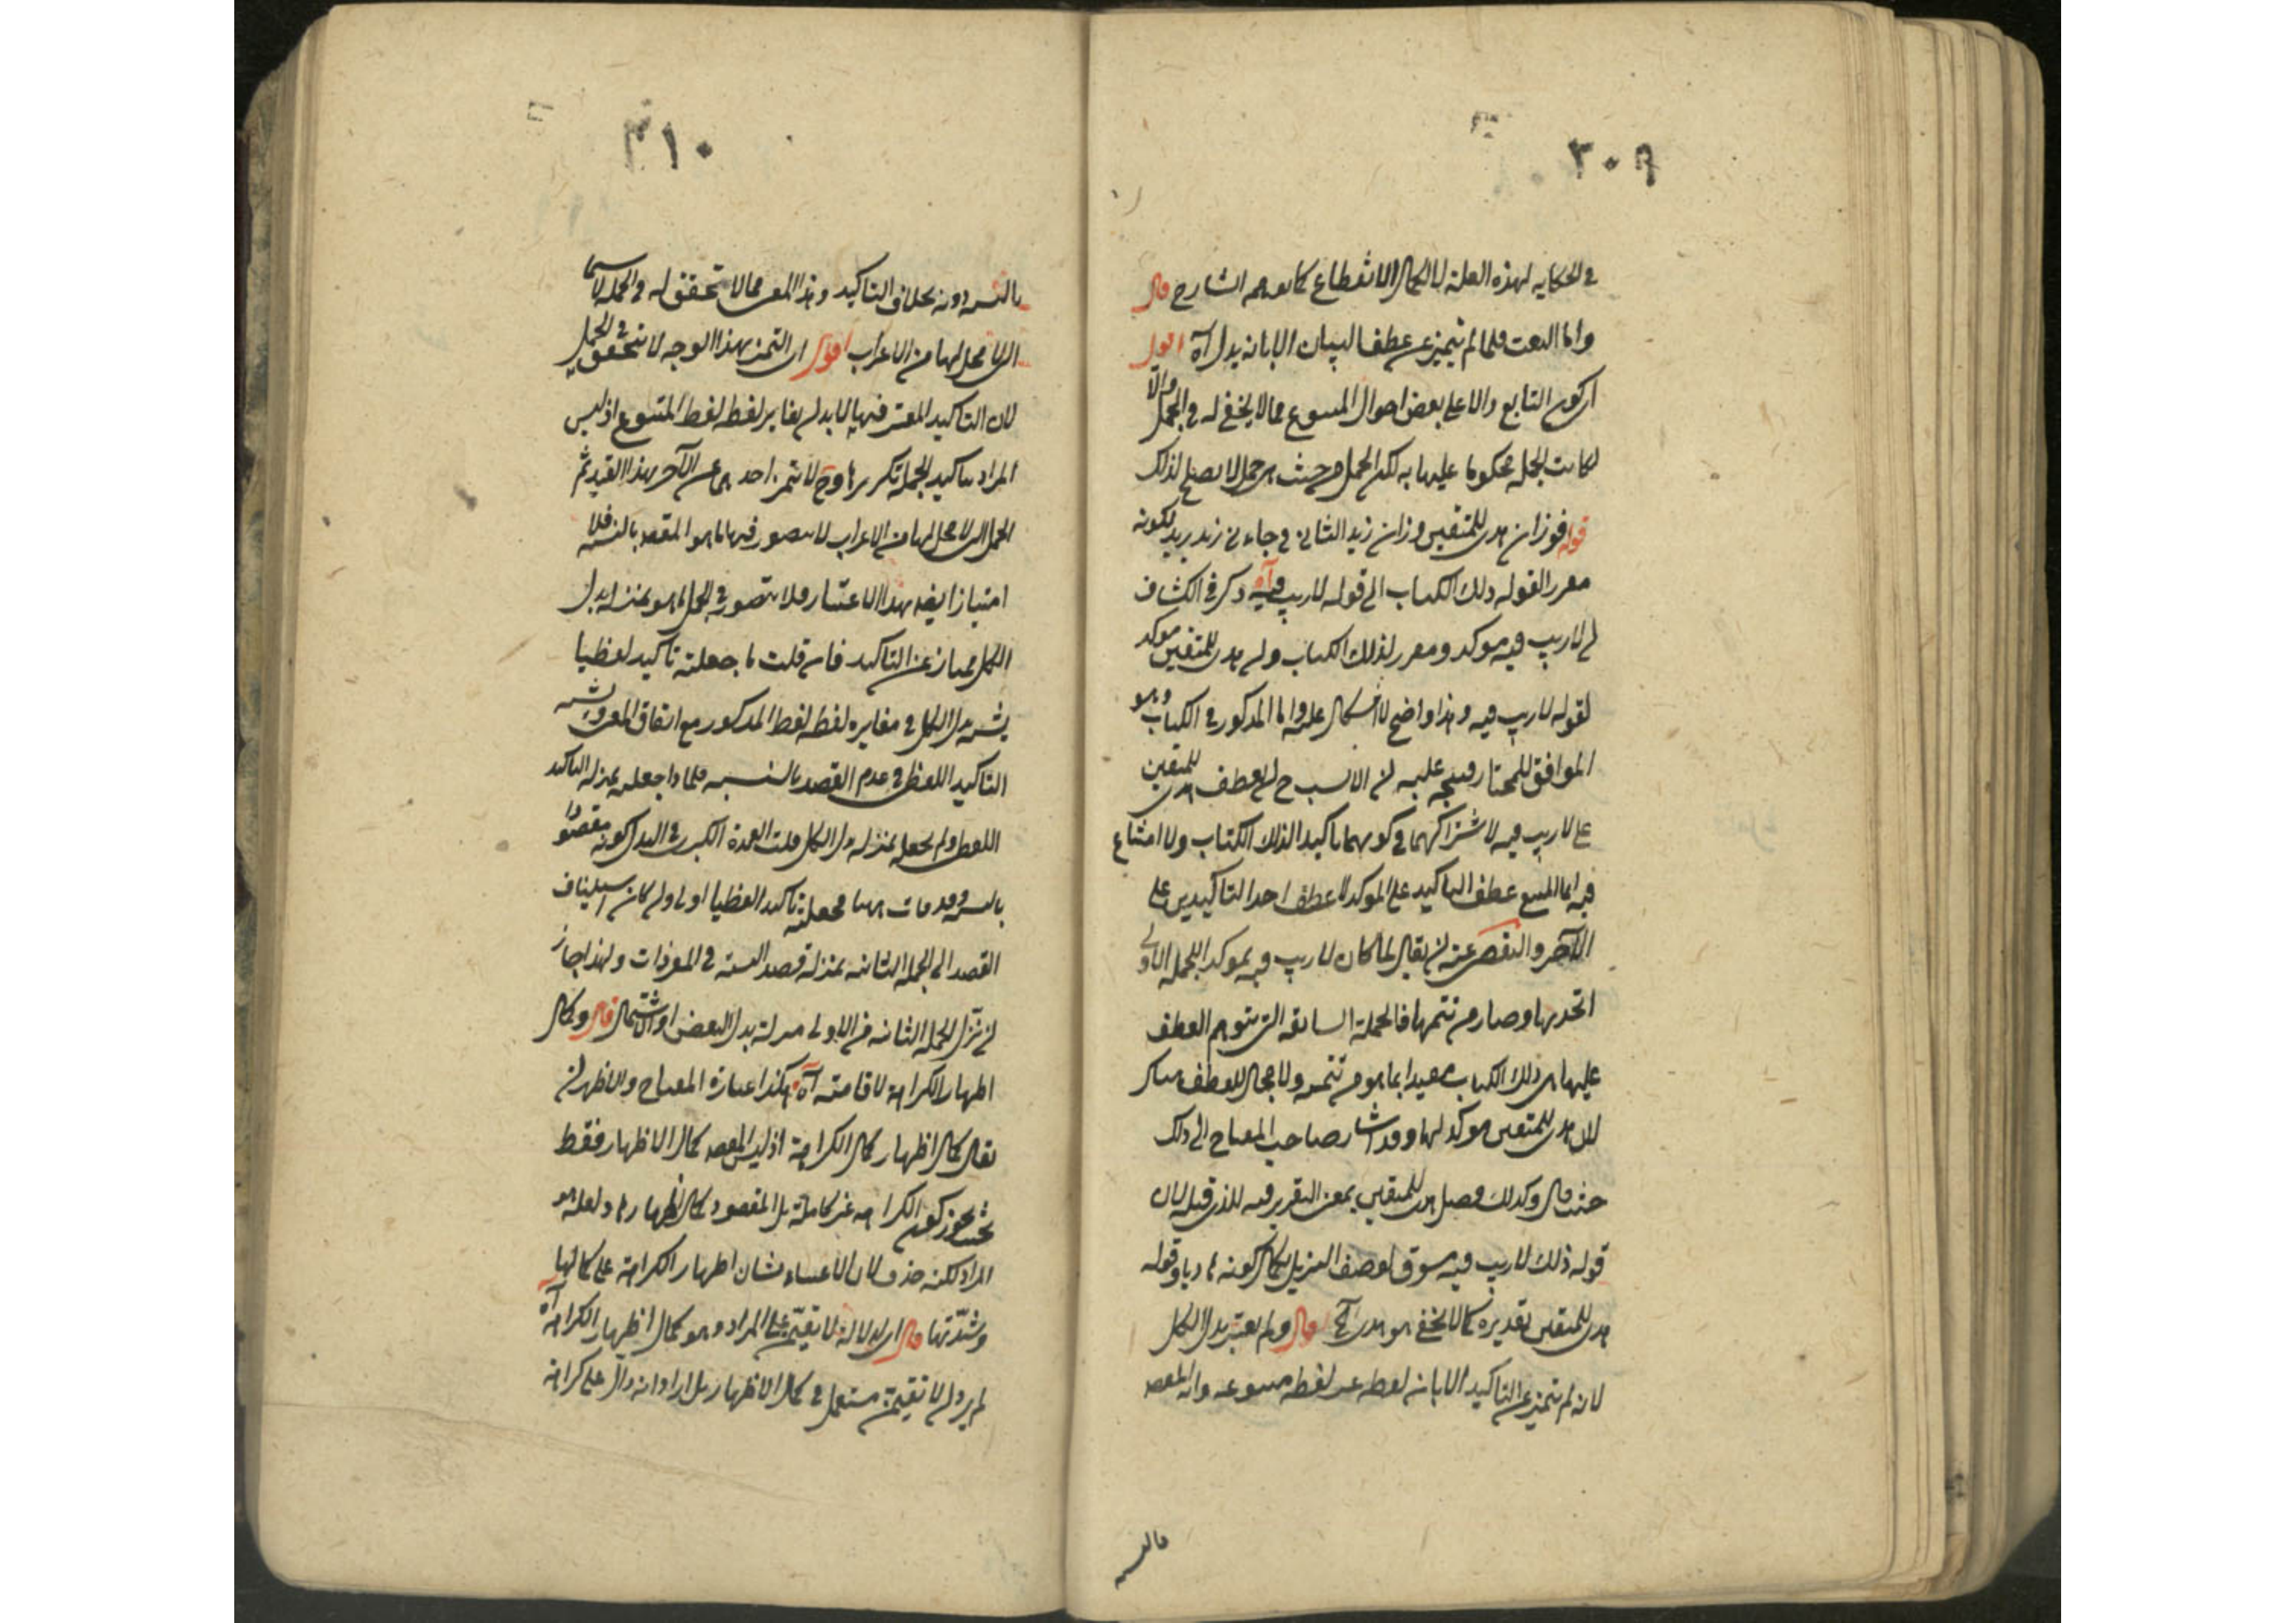 ٣٠٩
في الحكاية لهذه العلة لا لكمال الانقطاع كما توهمه الشارح قال
واما النعت فلما لم يتميز عن عطف البيان الا بانه يدل آه اقول
اي كون التابع دالا على بعض احوال المتبوع مما لا يخفى له في الجمل والا
لكانت الجملة محكوما عليها به لكن الجمل من حيث هي جمل لا تصلح لذلك
قوله فوزان هدى للمتقين وزان زيد الثاني في جاءني زيد زيد لكونه
مقررا لقوله ذلك الكتاب الى قوله لا ريب فيه آه ذكر في الكشاف
ان لا ريب فيه موكد ومقرر لذلك الكتاب وان هدى للمتقين موكد
لقوله لا ريب فيه وهذا واضح لا اشكال عليه واما المذكور في الكتاب وهو
الموافق للمختار فيتجه عليه ان الانسب ح ان يعطف هدى للمتقين
على لا ريب فيه لاشتراكهما في كونهما تاكيدا لذلك الكتاب ولا امتناع
فيه انما الممتنع عطف التاكيد على الموكد لا عطف احد التاكيدين على
الآخر والتفصي عنه ان يقال لما كان لا ريب فيه موكدا للجملة الاولى
اتحد بها وصار من تتمتها فالجملة السابقة التي يتوهم العطف
عليها هي ذلك الكتاب مقيدا بما هو من تتمته ولا مجال للعطف هناك
لان هدى للمتقين موكد لها وقد اشار صاحب المفتاح الى ذلك
حيث قال وكذلك فصل هدى للمتقين بمعنى التقرير فيه للذي قبله لان
قوله ذلك لا ريب فيه مسوق لوصف التنزيل بكمال كونه هاديا وقوله
هدى للمتقين تقديره كما لا يخفى هو هدى آه قال ولم يعتبر بدل الكل
لانه لم يتميز عن التاكيد الا بان لفظه غير لفظ متبوعه وانه المقصود
بالنسبة
٣١٠
بالنسبة دونه بخلاف التاكيد وهذا المعنى مما لا تحقق له في الجمل لا سيما
التي لا محل لها من الاعراب اقول اي التميز بهذا الوجه لا يتحقق في الجمل
لان التاكيد المعتبر فيها لا بد ان يغاير لفظه لفظ المتبوع اذ ليس
المراد بتاكيد الجملة تكريرها وح لا يتميز احدهما عن الآخر بهذا القيد ثم
الجمل التي لا محل لها من الاعراب لا يتصور فيها ما هو المقصود بالنسبة فلا
امتياز ايضا بهذا الاعتبار فلا يتصور في الجمل ما هو بمنزلة بدل
الكل ممتازا عن التاكيد فان قلت ما جعلته تاكيدا لفظيا
يشبه بدل الكل في مغايرة لفظه لفظ المذكور مع اتفاق المعنى ويشبه
التاكيد اللفظي في عدم القصد بالنسبة فلماذا جعله بمنزلة التاكيد
اللفظي ولم يجعله بمنزلة بدل الكل قلت العمدة الكبرى في البدل كونه مقصودا
بالنسبة وقد فات ههنا فجعله تاكيدا لفظيا اولى وان كان استيناف
القصد الى الجملة الثانية بمنزلة قصد النسبة في المفردات ولهذا جاز
ان تنزل الجملة الثانية من الاولى منزلة بدل البعض او الاشتمال قال وكمال
اظهار الكراهة لاقامته آه هكذا عبارة المفتاح والاظهر ان
يقال كمال اظهار كمال الكراهة اذ ليس المقصود كمال الاظهار فقط
بحيث يجوز كون الكراهة غير كاملة بل المقصود كمال اظهارها ولعله هو
المراد لكنه حذف لان الاعتناء بشان اظهار الكراهة على كمالها
وشدتها قال اي لدلالة لا تقيمن على المراد وهو كمال اظهار الكراهة آه
لم يرد ان لا تقيمن مستعمل في كمال الاظهار بل اراد انه دال على كراهة